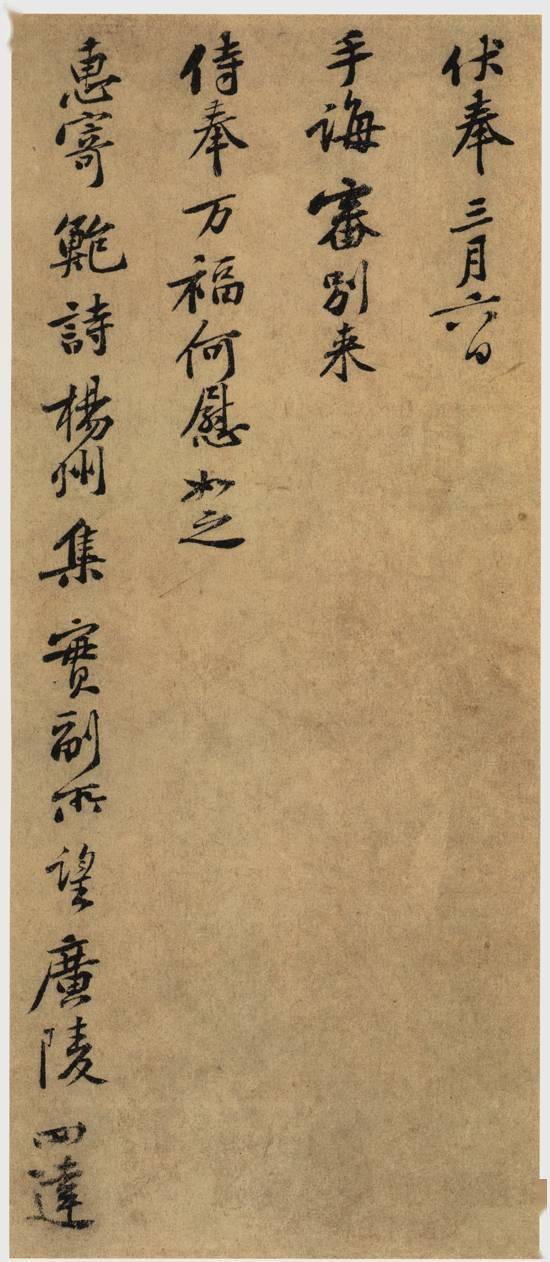 伏奉三月六日
手诲審別来
侍奉万福何慰如之
惠寄鮑詩楊州集實副所望廣陵四達